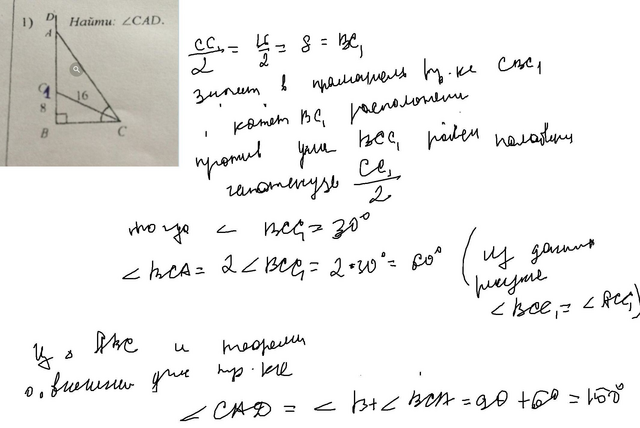 1) Найти: ∠CAD.
D
A
C1
16
8
B
C
CC₁/2 = 16/2 = 8 = BC₁
значит в прямоугольн тр.ке CBC₁
катет BC₁ расположен
против угла BCC₁ равен половине
гипотенузы CC₁/2
тогда ∠ BCC₁ = 30°
∠BCA = 2∠BCC₁ = 2·30° = 60° (из данных
рисунка
∠BCC₁ = ∠ACC₁)
Из △ ABC и теоремы
о внешнем угле тр-ка
∠CAD = ∠B + ∠BCA = 90 + 60 = 150°